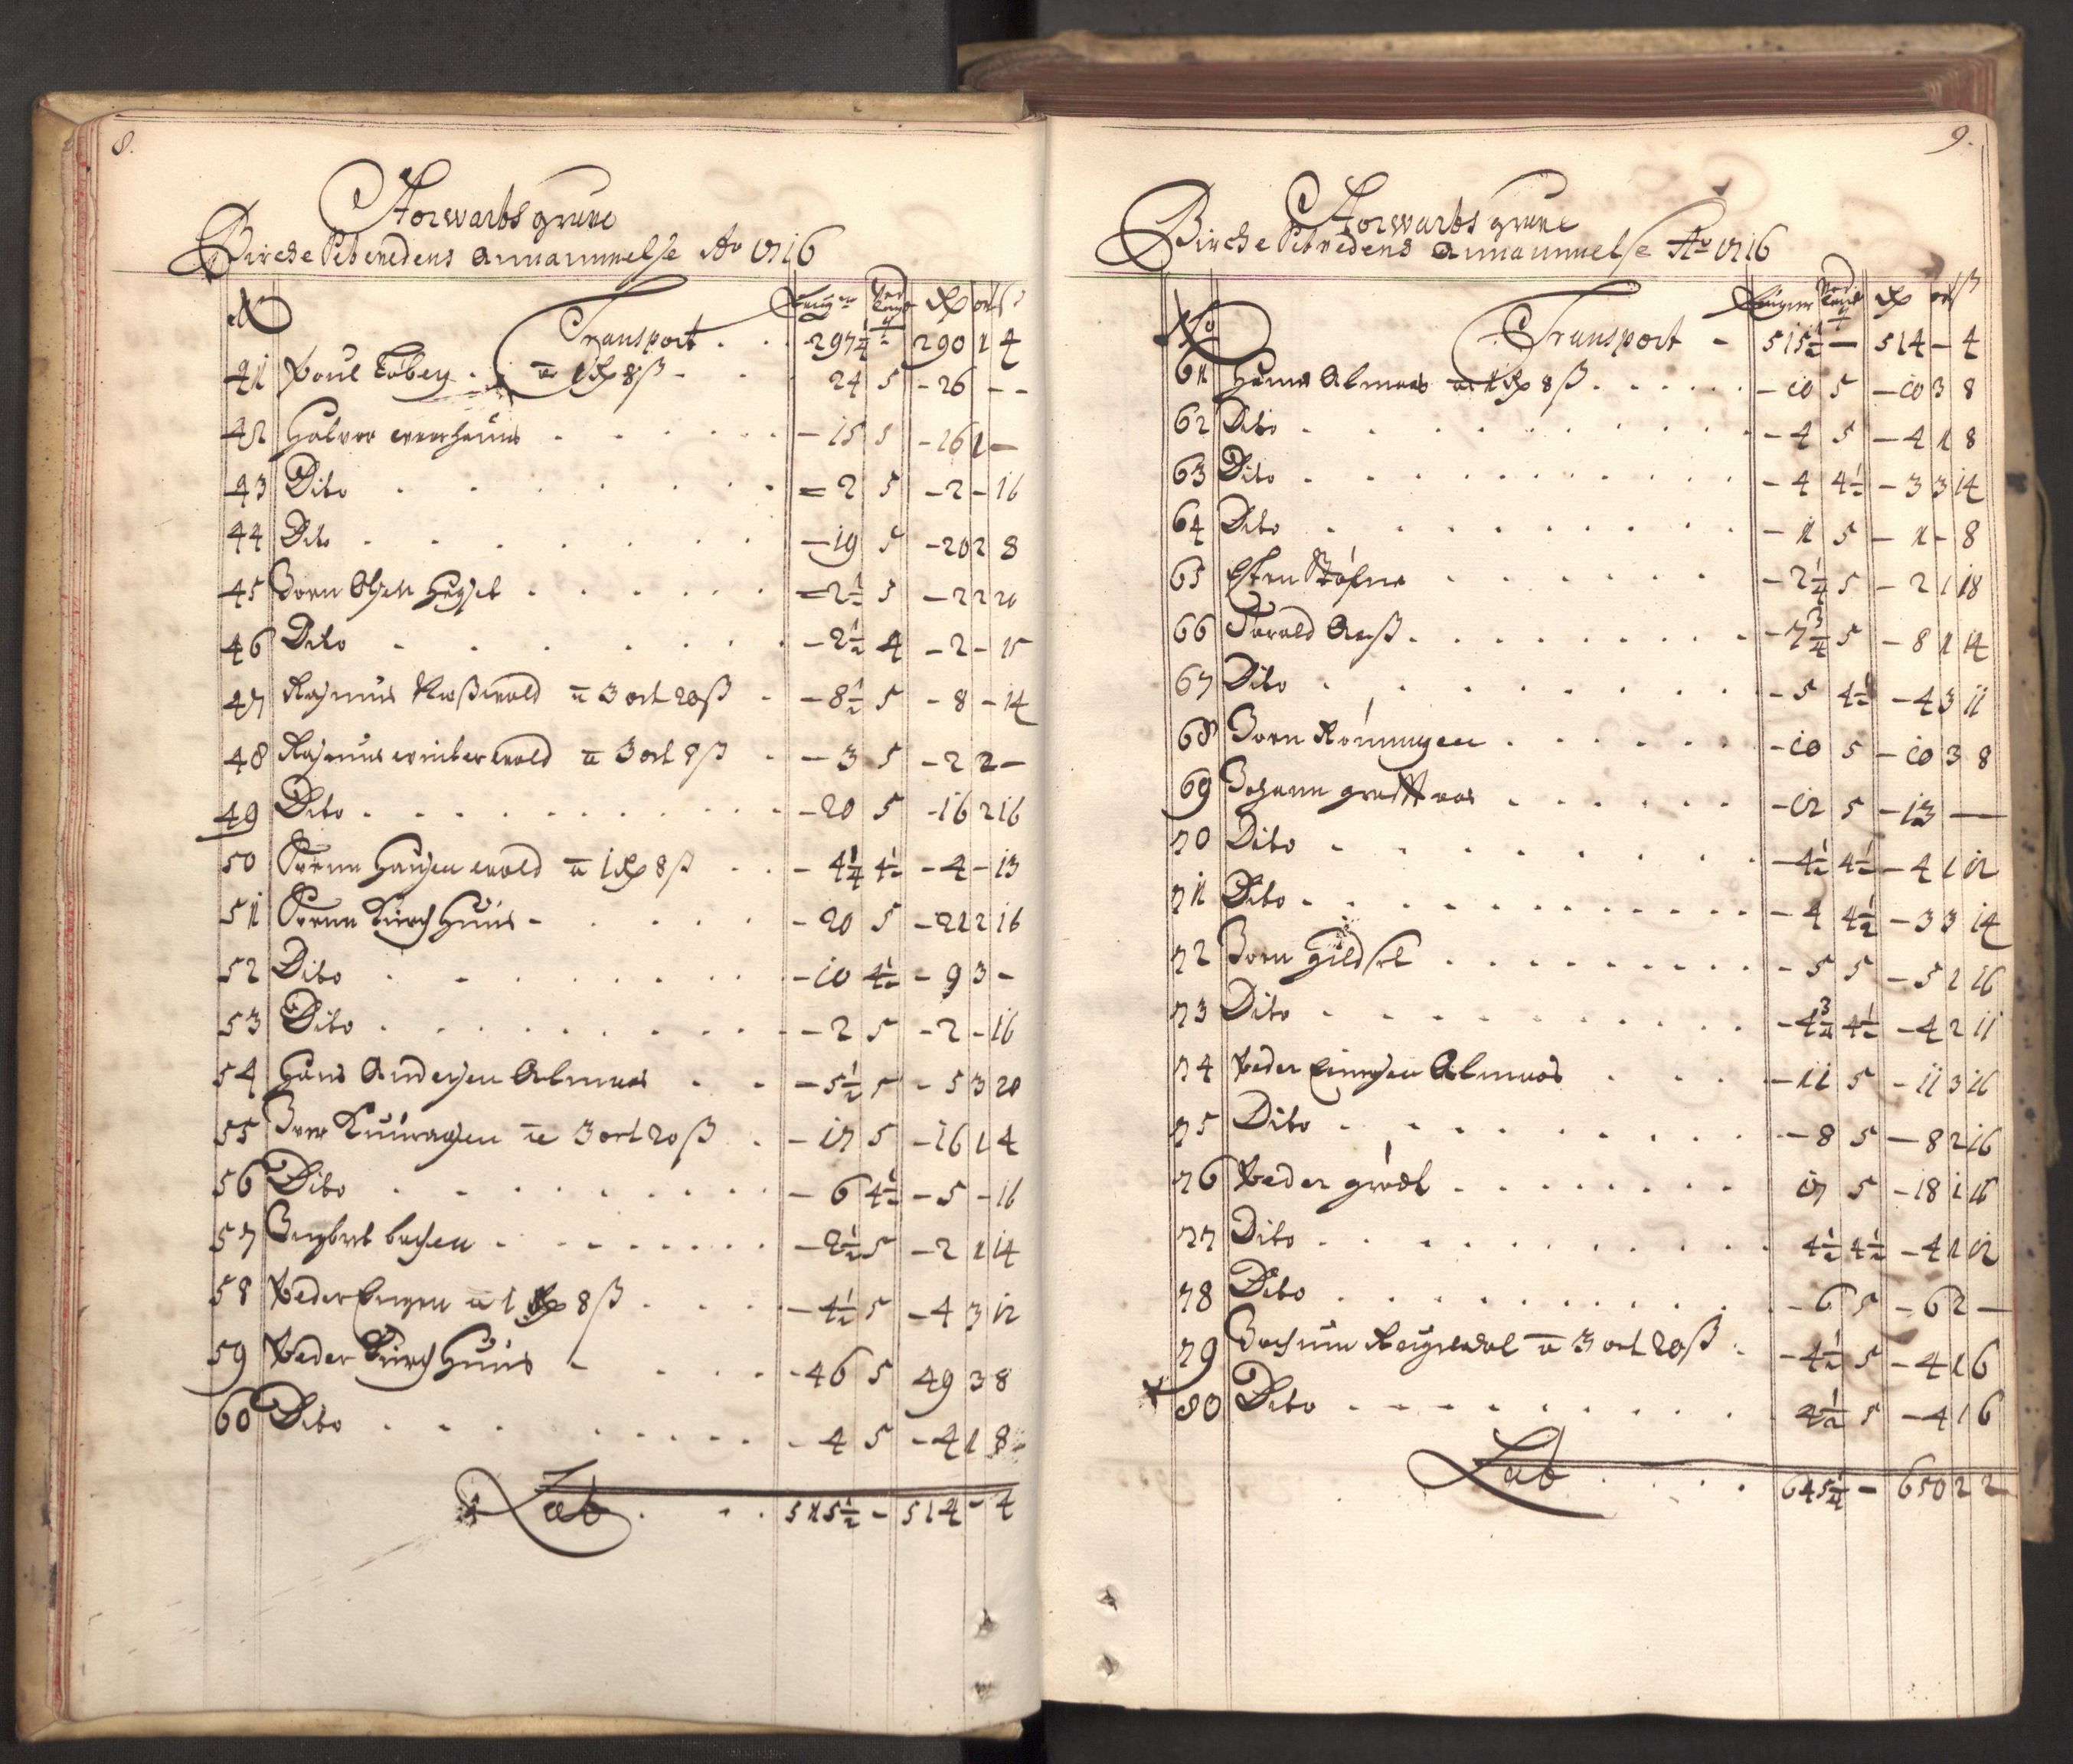 8.
Storwarts grube
Bircke Setvedens Annammelse Ao 1716
No Faugner Ved Lengd Rd ort ß
Transport . . 297 1/4 - 290 1 4
41 Poul Toberg . a 1 Rd 8 ß - 24 5 - 26 - -
42 Halvor . . . - 15 5 - 16 1 -
43 Dito . . . = 2 5 - 2 - 16
44 Dito . . . - 19 5 - 20 2 8
45 Joen Olsen . . . = 2 1/2 5 - 2 2 20
46 Dito . . . - 2 1/2 4 - 2 - 15
47 Rasmus a 3 ort 20 ß - 8 1/2 5 - 8 - 14
48 Rasmus winter wold a 3 ort 8 ß - 3 5 - 2 2 -
49 Dito . . . - 20 5 - 16 2 16
50 Hansen wold a 1 Rd 8 ß . . - 4 1/4 4 1/2 - 4 - 13
51 Kirch Huus - . . . - 20 5 - 21 2 16
52 Dito . . . - 10 4 1/2 - 9 3 -
53 Dito . . . - 2 5 - 2 - 16
54 Hans Andersen Almaas . . - 5 1/2 5 - 5 3 20
55 Iver a 3 ort 20 ß . - 17 5 - 16 1 4
56 Dito . . . - 6 4 1/2 - 5 - 16
57 Ingbret . . . - 2 1/2 5 - 2 1 14
58 Peder Engen a 1 Rd 8 ß . . . - 4 1/2 5 - 4 3 12
59 Peder Kirch Huus - . . . - 46 5 49 3 8
60 Dito . . . - 4 5 - 4 1 8
Lat . . . 515 1/2 - 514 - 4
9.
Storwarts grube
Bircke Setvedens Annammelse Ao 1716
No Faugner Ved Lengd Rd ort ß
Transport - 515 1/2 - 514 - 4
61 Hans Almaas a 1 Rd 8 ß . . . - 10 5 - 10 3 8
62 Dito . . . - 4 5 - 4 1 8
63 Dito . . . - 4 4 1/2 - 3 3 14
64 Dito . . . - 1 5 - 1 - 8
65 Esten . . . - 2 1/4 5 - 2 1 18
66 Aaß . . . - 7 3/4 5 - 8 1 14
67 Dito . . . - 5 4 1/2 - 4 3 11
68 Joen Rönningen . . . - 10 5 - 10 3 8
69 Johann . . . - 12 5 - 13 -
70 Dito . . . - 4 1/2 4 1/2 - 4 1 12
71 Dito . . . - 4 4 1/2 - 3 3 14
72 Joen . . . - 5 5 - 5 1 16
73 Dito . . . - 4 3/4 4 1/2 - 4 2 11
74 Peder Almaas . . . - 11 5 - 11 3 16
75 Dito . . . - 8 5 - 8 2 16
76 Peder grödt . . . 17 5 - 18 1 16
77 Dito . . . 4 1/2 4 1/2 - 4 1 12
78 Dito . . . - 6 5 - 6 2 -
79 Jochum a 3 ort 20 ß . - 4 1/2 5 - 4 1 6
80 Dito . . . 4 1/2 5 - 4 1 6
Lat . . . 645 1/4 - 650 2 2